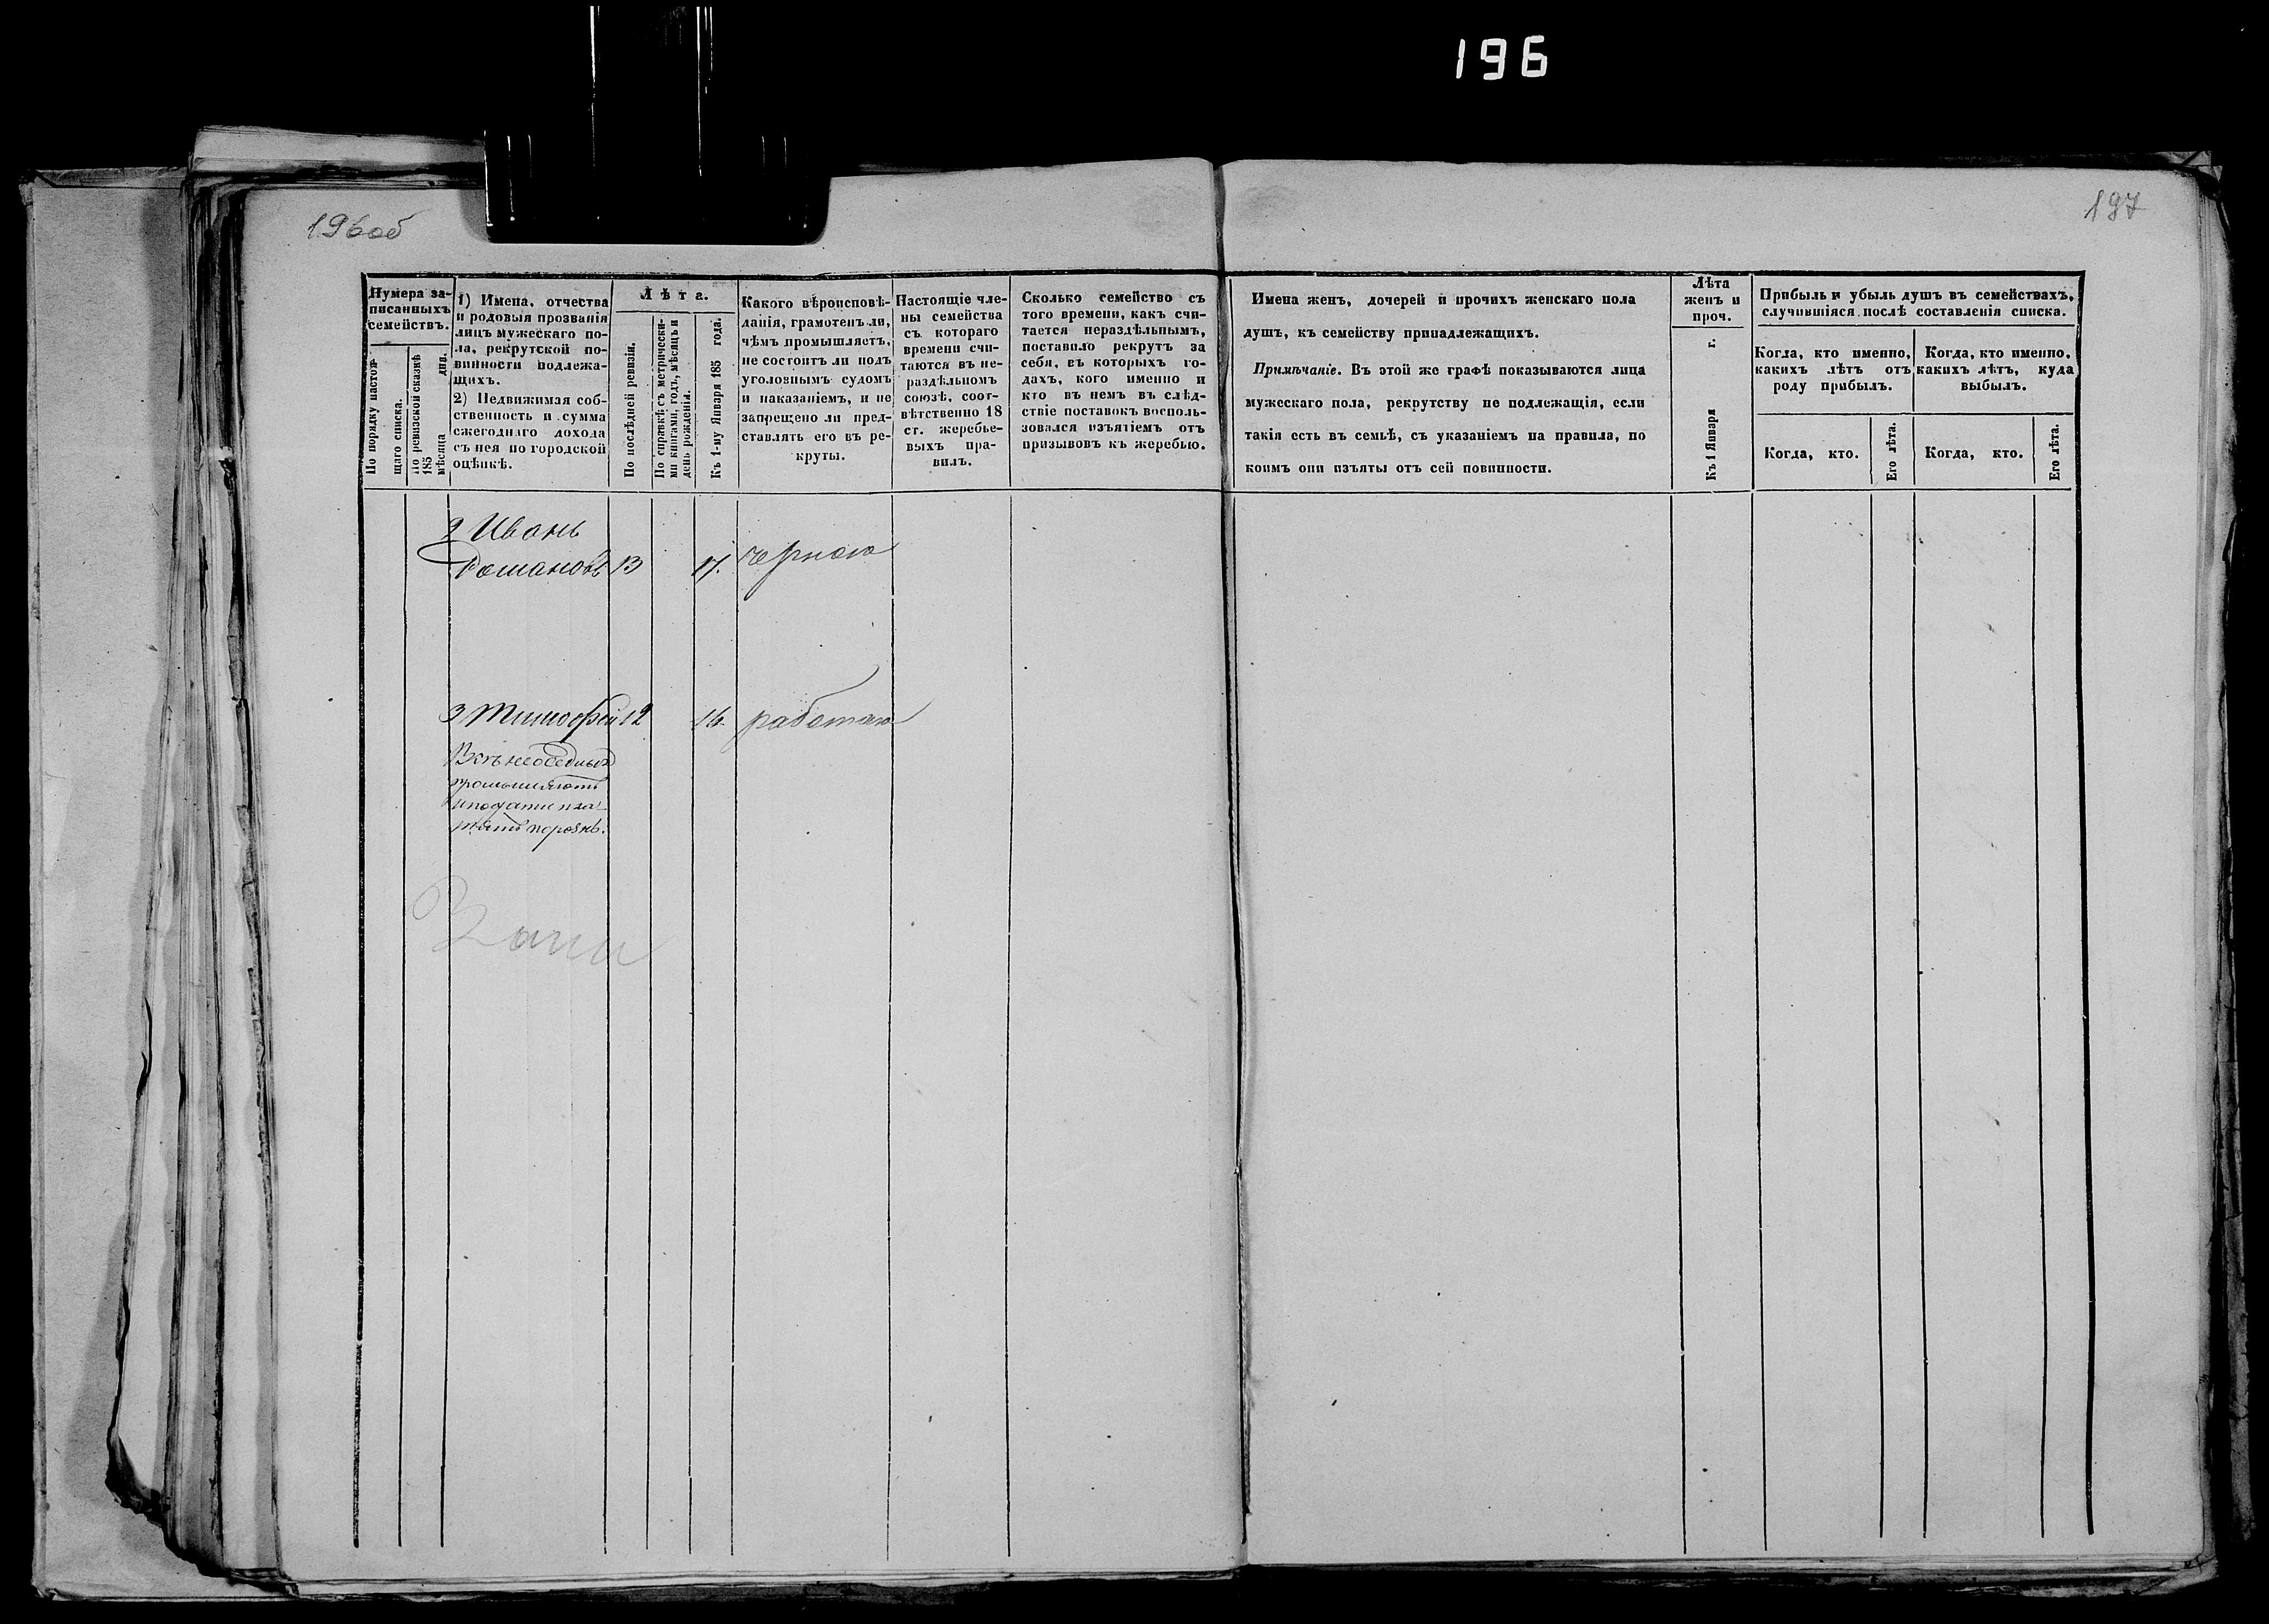 196
196об
197
Нумера записанныхъ семействъ.
По порядку настоящаго списка.
По ревизской сказкѣ 185 мѣсяца дня.
1) Имена, отчества
и родовыя прозванія
лицъ мужескаго по-
ла, рекрутской по-
винности подлежа-
щихъ.
2) Недвижимая соб-
ственность и сумма
ежегоднаго дохода
съ нея по городской
оцѣнкѣ.
Лѣта.
По послѣдней ревизіи.
По справкѣ съ метрически-
ми книгами, годъ, мѣсяцъ и
день рожденія.
Къ 1-му Января 185 года.
Какого вѣроисповѣ-
данія, грамотенъ ли,
чѣмъ промышляетъ,
не состоитъ ли подъ
уголовнымъ судомъ
и наказаніемъ, и не
запрещено ли пред-
ставлять его въ ре-
круты.
Настоящіе чле-
ны семейства
съ котораго
времени счи-
таются въ не-
раздѣльномъ
союзѣ, соот-
вѣтственно 18
ст. жеребье-
выхъ пра-
вилъ.
Сколько семейство съ
того времени, какъ счи-
тается нераздѣльнымъ,
поставило рекрутъ за
себя, въ которыхъ го-
дахъ, кого именно и
кто въ немъ въ слѣд-
ствіе поставокъ восполь-
зовался изъятіемъ отъ
призывовъ къ жеребью.
Имена женъ, дочерей и прочихъ женскаго пола
душъ, къ семейству принадлежащихъ.
Примѣчаніе. Въ этой же графѣ показываются лица
мужескаго пола, рекрутству не подлежащія, если
такія есть въ семьѣ, съ указаніемъ на правила, по
коимъ они изъяты отъ сей повинности.
Лѣта
женъ и
проч.
Къ 1 Января г.
Прибыль и убыль душъ въ семействахъ,
случившіяся послѣ составленія списка.
Когда, кто именно,
какихъ лѣтъ отъ
роду прибылъ.
Когда, кто именно,
какихъ лѣтъ, куда
выбылъ.
Когда, кто.
Его лѣта.
Когда, кто.
Его лѣта.
2 Иванъ
Романовъ 13 17. черною
3 Тимофей 12 16 работаю
промышляютъ
и подати пла-
тятъ порознь.